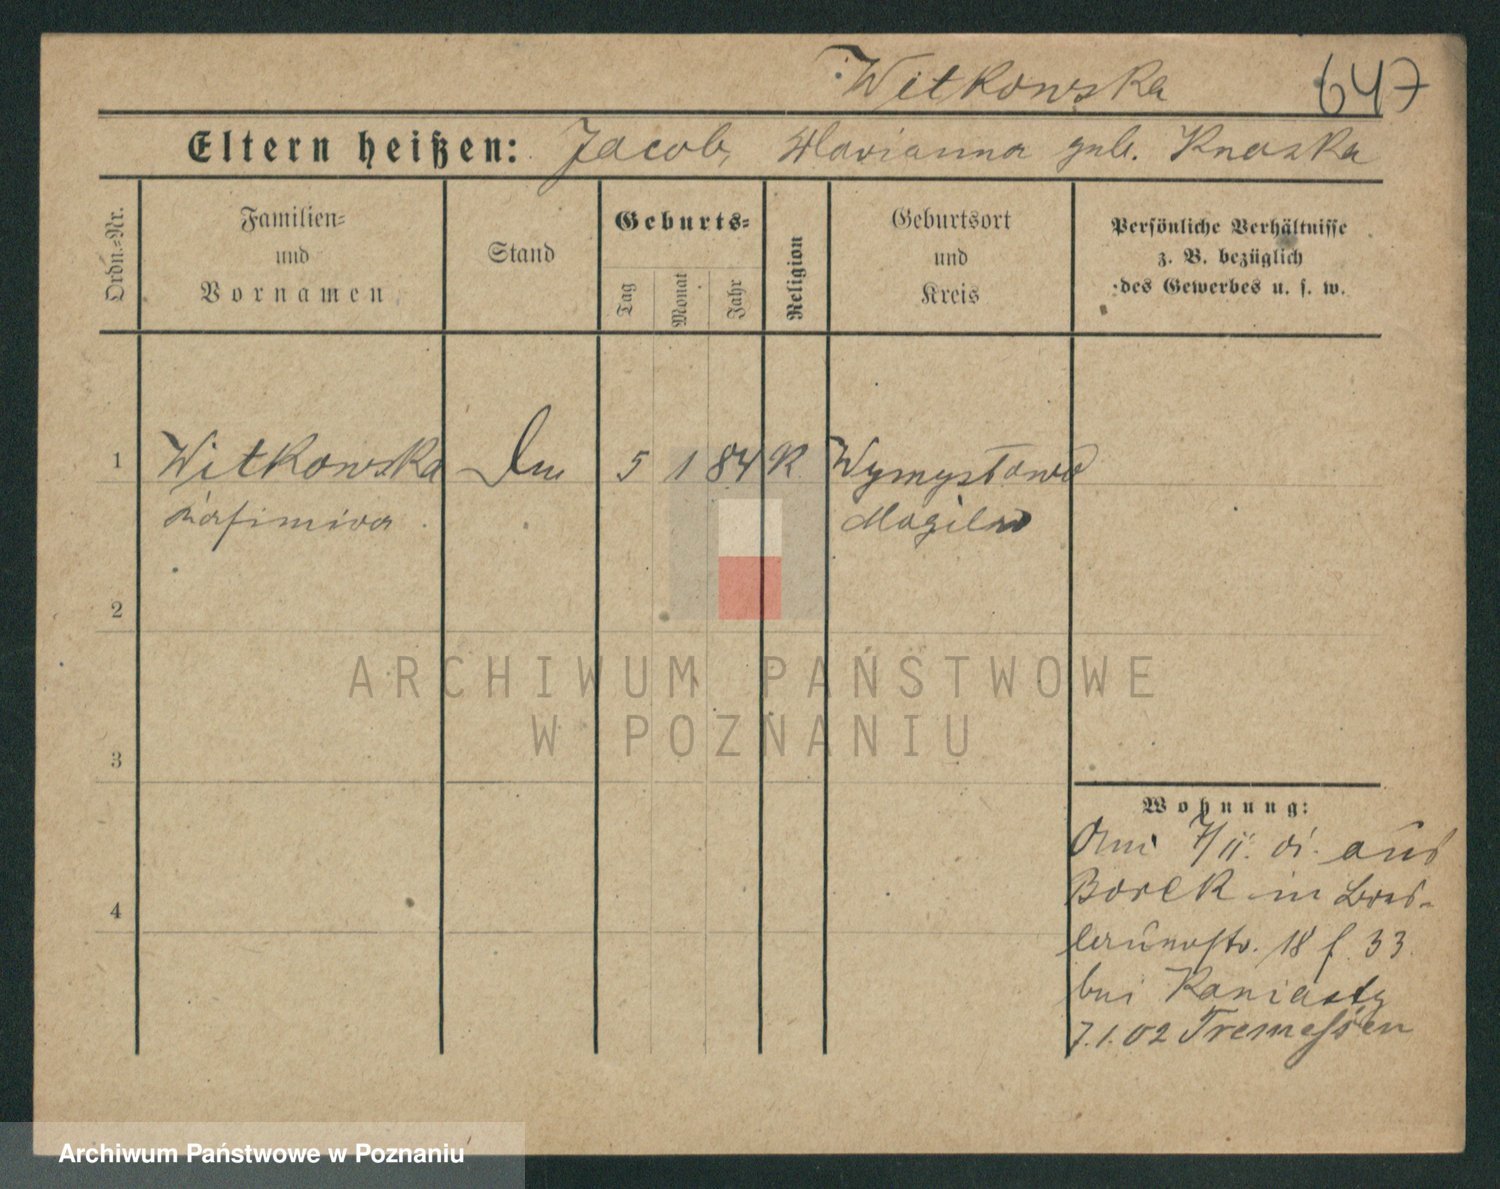 Witkowska 647
Eltern heißen: Jacob, Marianna geb. Knaska
Ordn.-Nr.
Familien-
und
Vornamen
Stand
Geburts-
Tag
Monat
Jahr
Religion
Geburtsort
und
Kreis
Persönliche Verhältnisse
z. B. bezüglich
des Gewerbes u. s. w.
1 Witkowska 5 1 84 K Wymysłowo
Kasimira Mogilno
2
ARCHIWUM PAŃSTWOWE
W POZNANIU
3
Wohnung:
7/11. 01. aus
Borek in
18 33
bei Kaniasty
7.1.02 Tremessen
4
Archiwum Państwowe w Poznaniu